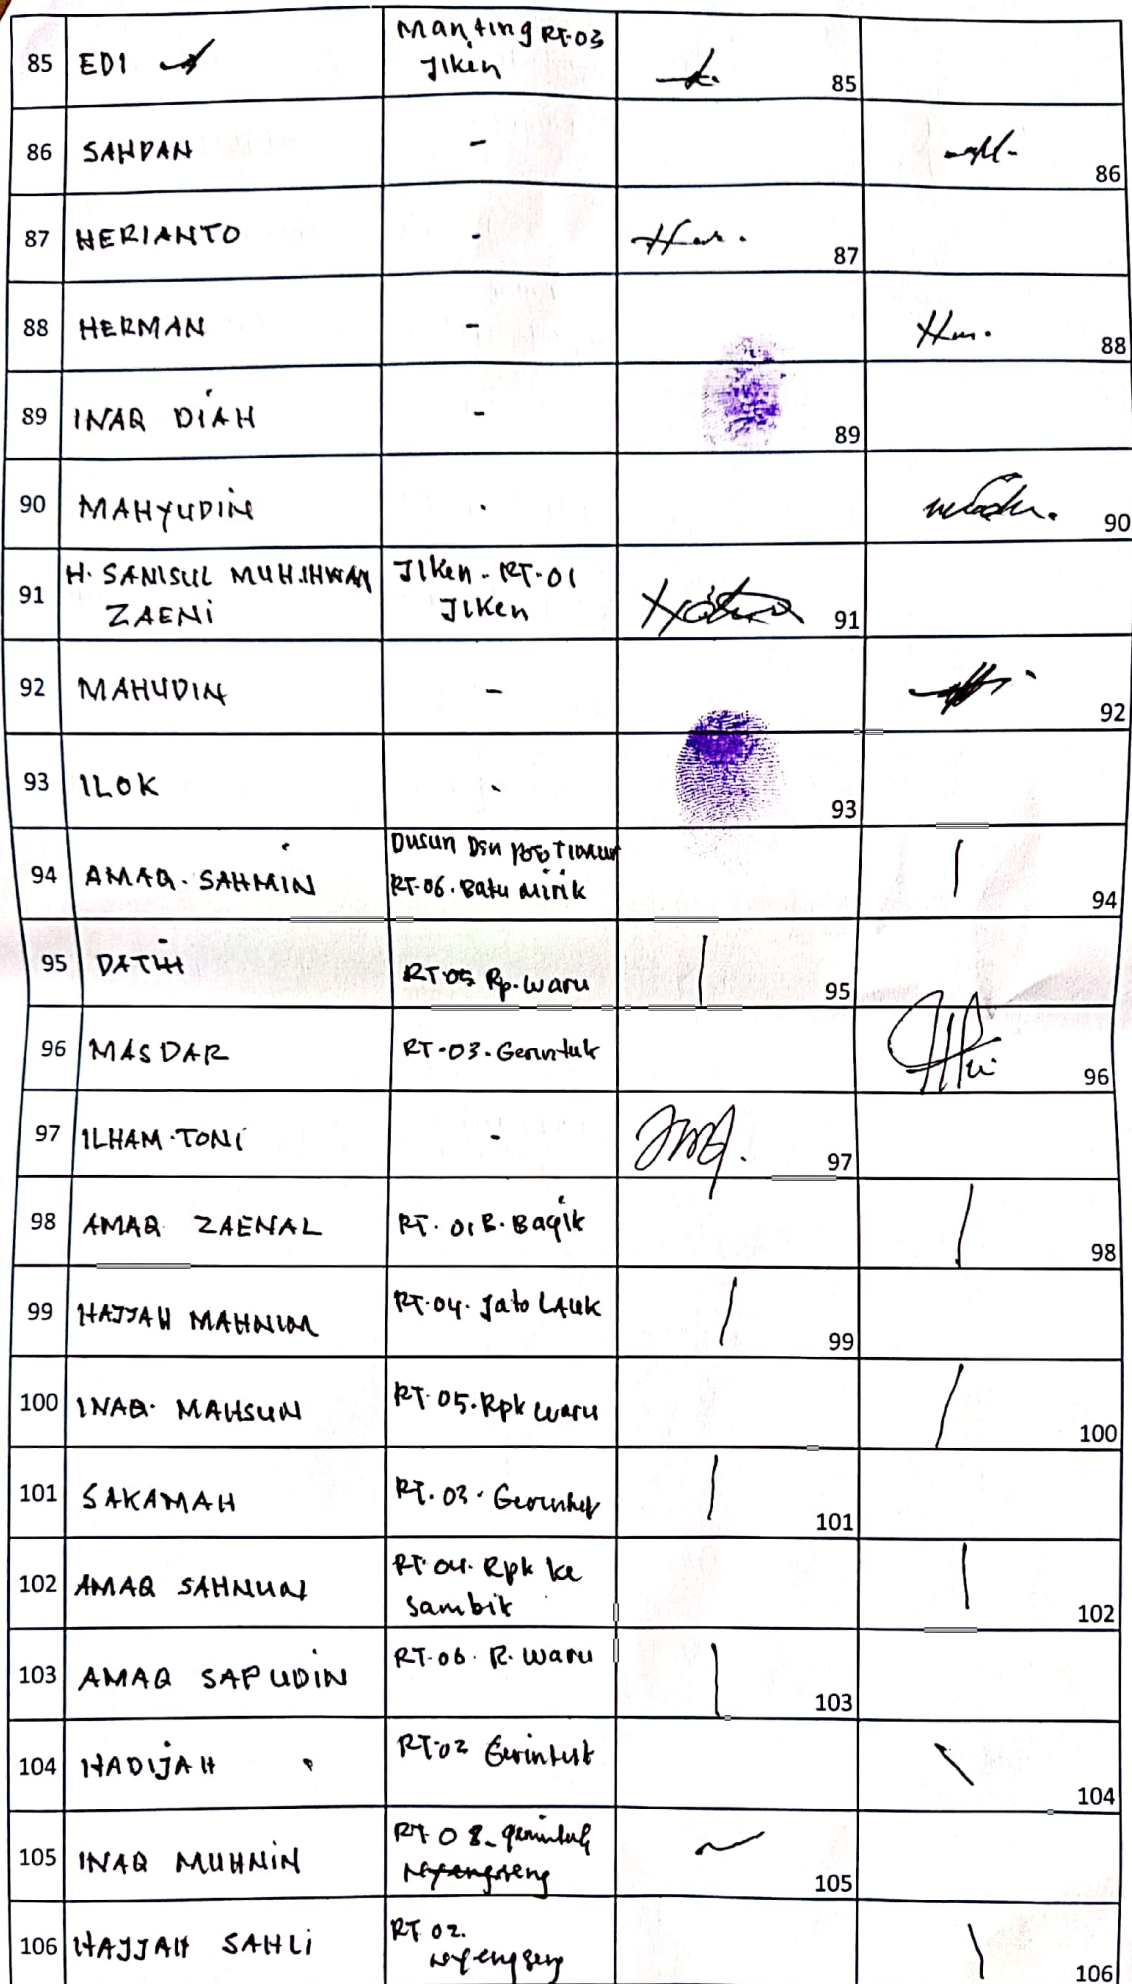 85 EDI Manting RT-03
Jiken 85
86 SAHDAN - 86
87 HERIANTO - 87
88 HERMAN - 88
89 INAQ DIAH - 89
90 MAHYUDIN . 90
91 H. SANISUL MUH.IHWAN Jiken - RT-01
ZAENI Jiken 91
92 MAHUDIN - 92
93 ILOK . 93
94 AMAQ. SAHMIN Dusun Dsn Timur
RT-06. Batu Mirik 94
95 RT 05 Rp. Waru 95
96 MASDAR RT-03. Gerintuk 96
97 ILHAM. TONI - 97
98 AMAQ ZAENAL RT. 01 B. Bagik 98
99 HAJJAH MAHNIM RT. 04. Jato Lauk 99
100 INAQ. MAHSUN RT. 05. Rpk Waru 100
101 SAKAMAH RT. 03. Gerintuk 101
102 AMAQ SAHNUN RT. 04. Rpk ke
Sambik 102
103 AMAQ SAPUDIN RT-06. R. Waru 103
104 HADIJAH RT-02 Gerintuk 104
105 INAQ MUHNIN RT 08_ gerintuk
Nyengseng 105
106 HAJJAH SAHLI RT 02.
Nyengseng 106